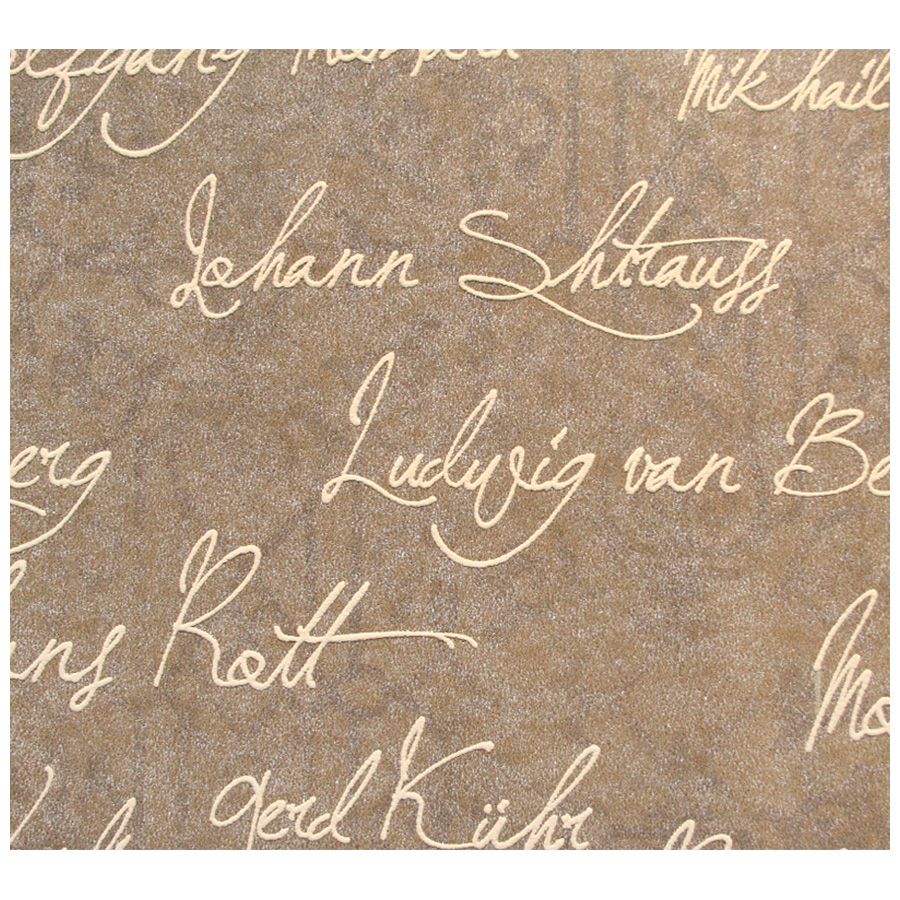 Mikhail
Johann Shtrauss
Ludwig van Be
erg
ns Rott
Mo
Gerd Kühr